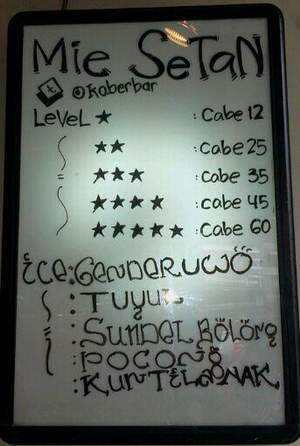 Mie SeTaN
t @kaberbar
LeVeL ★ : Cabe 12
★★ : Cabe 25
= ★★★ : Cabe 35
★★★★ : Cabe 45
★★★★★ : Cabe 60
iCe: GENDERUWO
: TUYUL
= : SUNDEL BOLONG
: POCONG
: KUNTILANAK